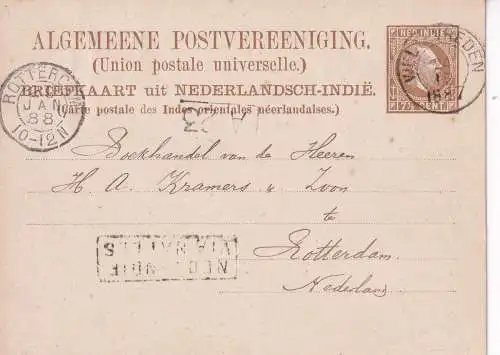 ALGEMEENE POSTVEREENIGING.
(Union postale universelle.)
BRIEFKAART uit NEDERLANDSCH-INDIË.
(Carte postale des Indes orientales néerlandaises.)
NED. INDIE
7½ CENT
ROTTERDAM
JAN
88
10-12N
Boekhandel van de Heeren
H. A. Kramers & Zoon
te
Rotterdam
Nederland
NED. INDIE
VIA NAPELS